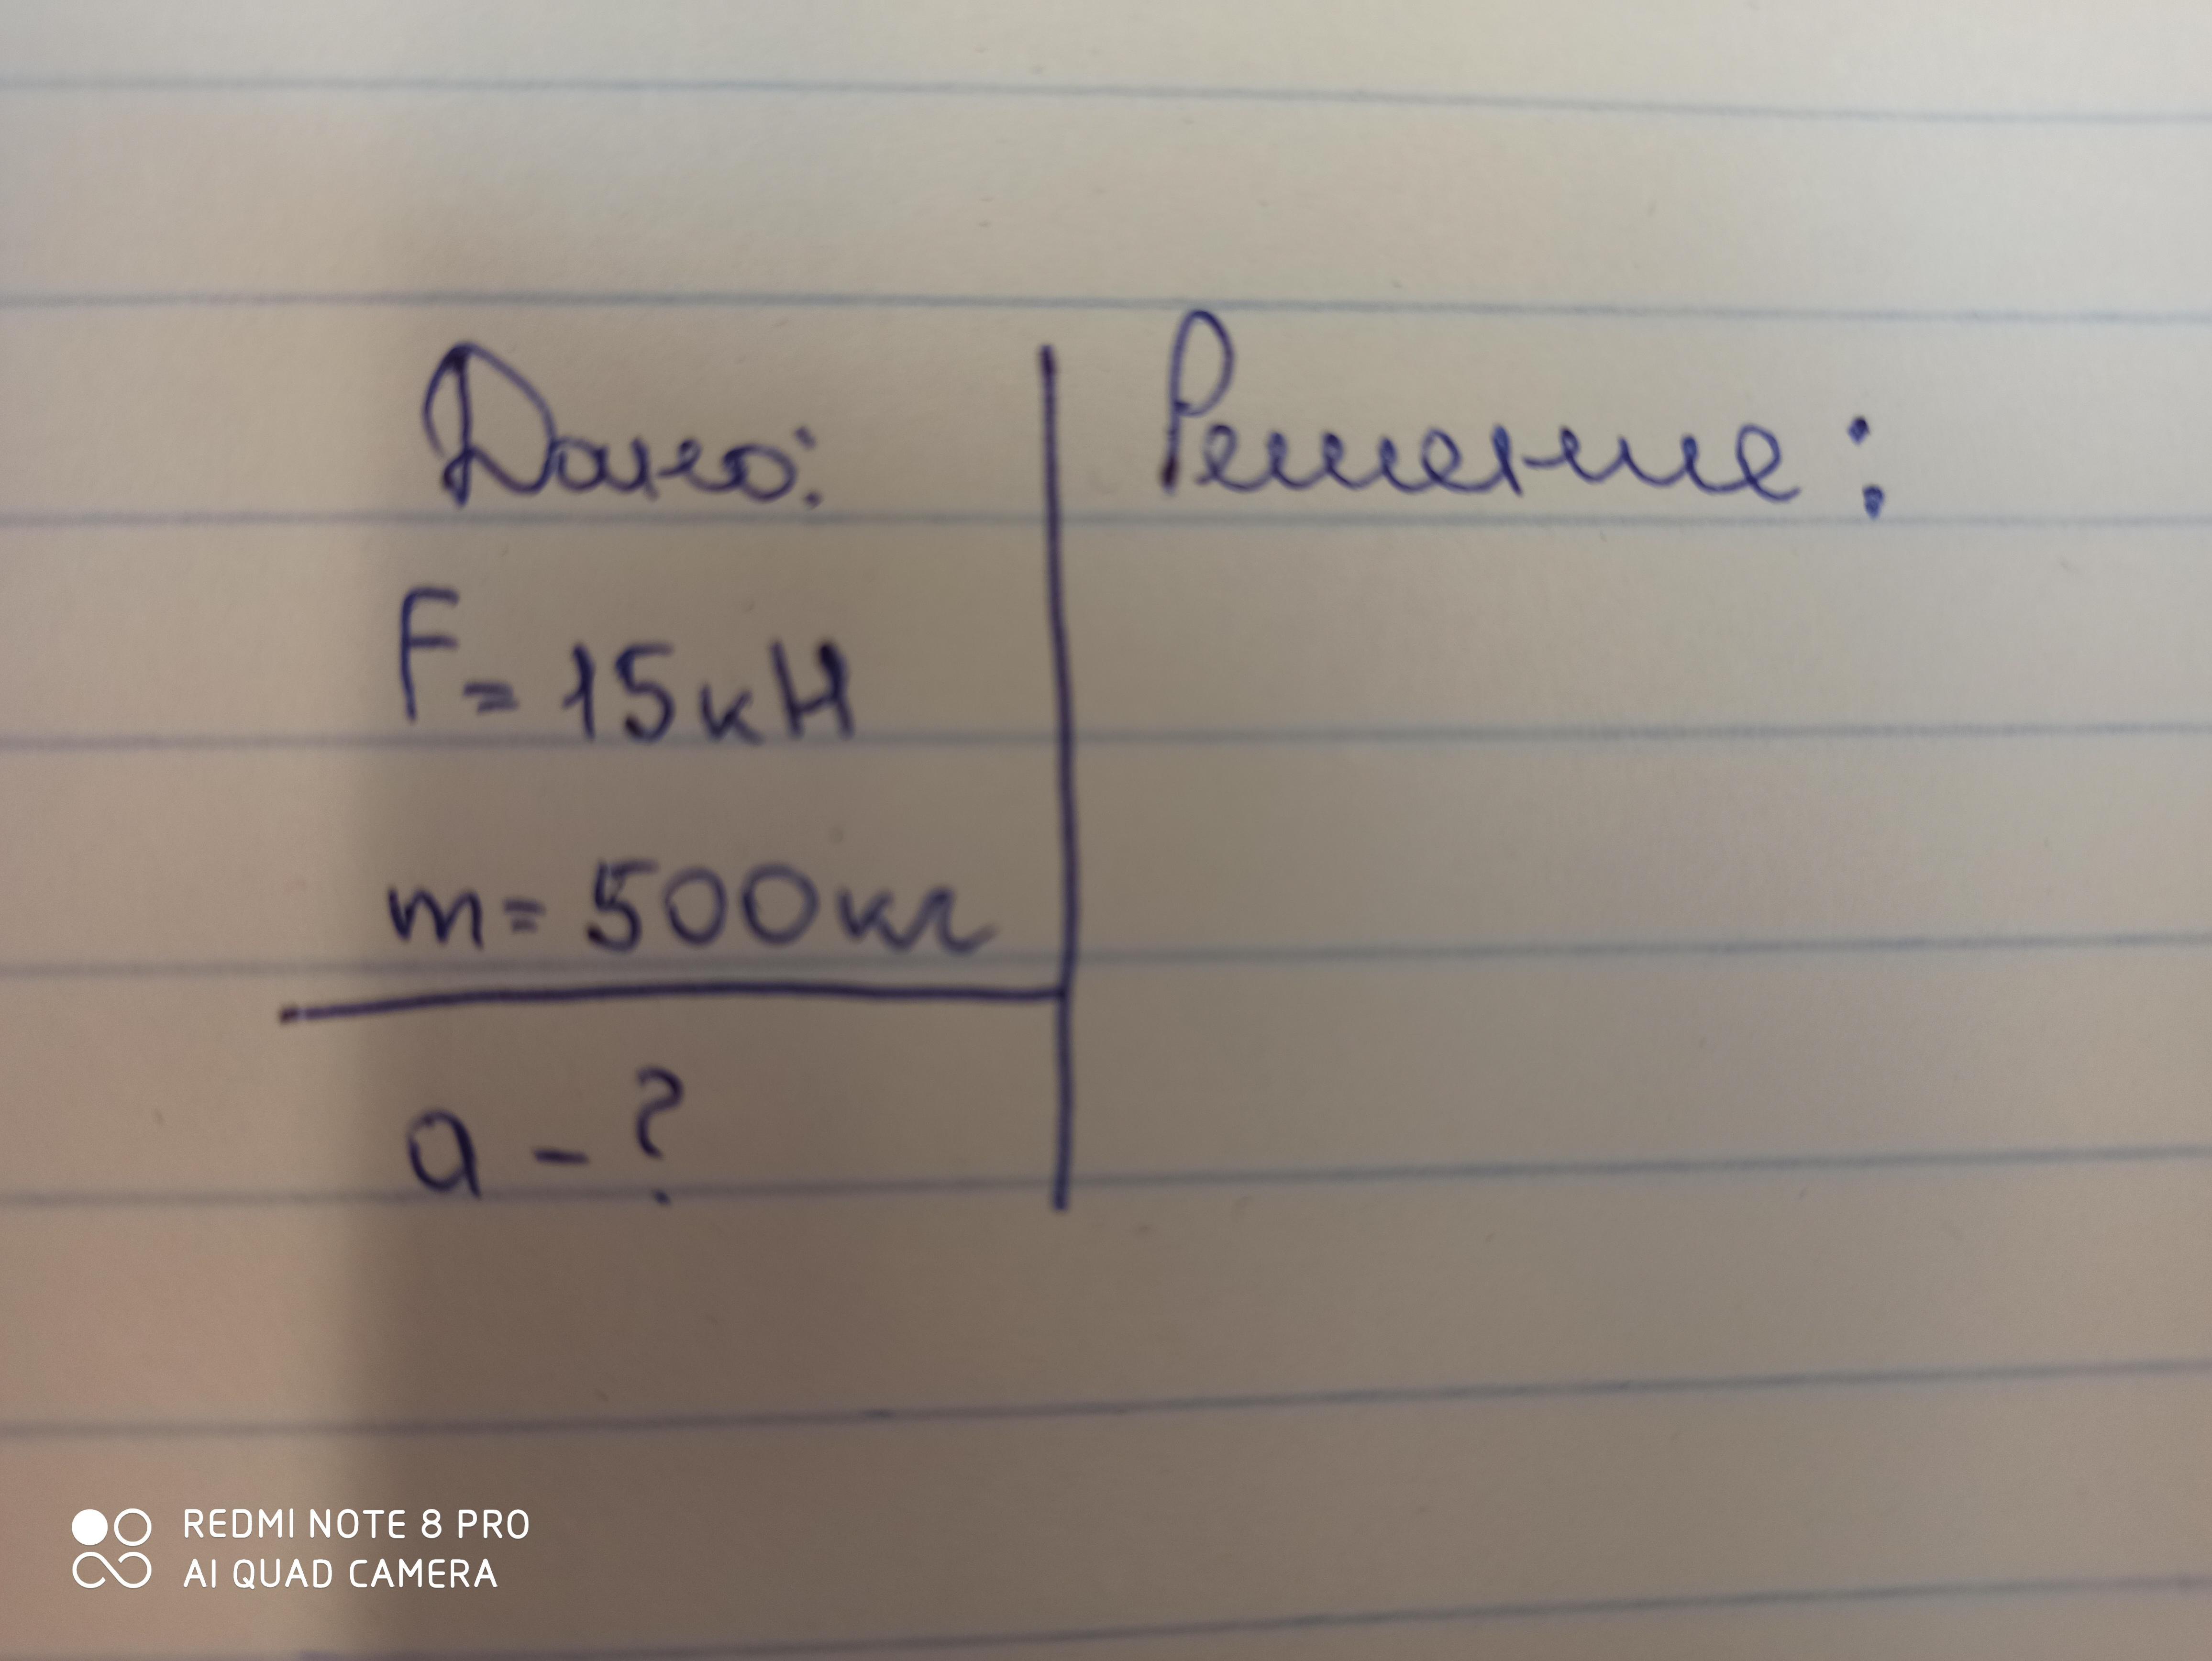 Дано:
F = 15 кН
m = 500 кг
a - ?
Решение:
REDMI NOTE 8 PRO
AI QUAD CAMERA